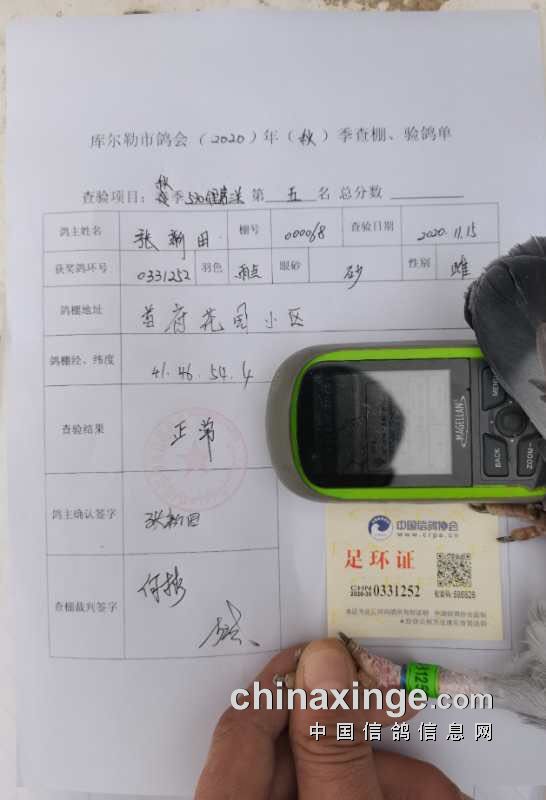 库尔勒市鸽会（2020）年（秋）季查棚、验鸽单
查验项目：秋季530 第 五 名 总分数
鸽主姓名 张新田 棚号 000068 查验日期 2020.11.15
获奖鸽环号 0331252 羽色 雨点 眼砂 砂 性别 雌
鸽棚地址 首府花园小区
鸽棚经、纬度 41.46.54.4
查验结果 正常
鸽主确认签字 张新田
查棚裁判签字
MAGELLAN
MENU
BACK
ZOOM
中国信鸽协会
www.crpa.cn
足环证
CHN 2020-30 0331252
chinaxinge.com
中国信鸽信息网